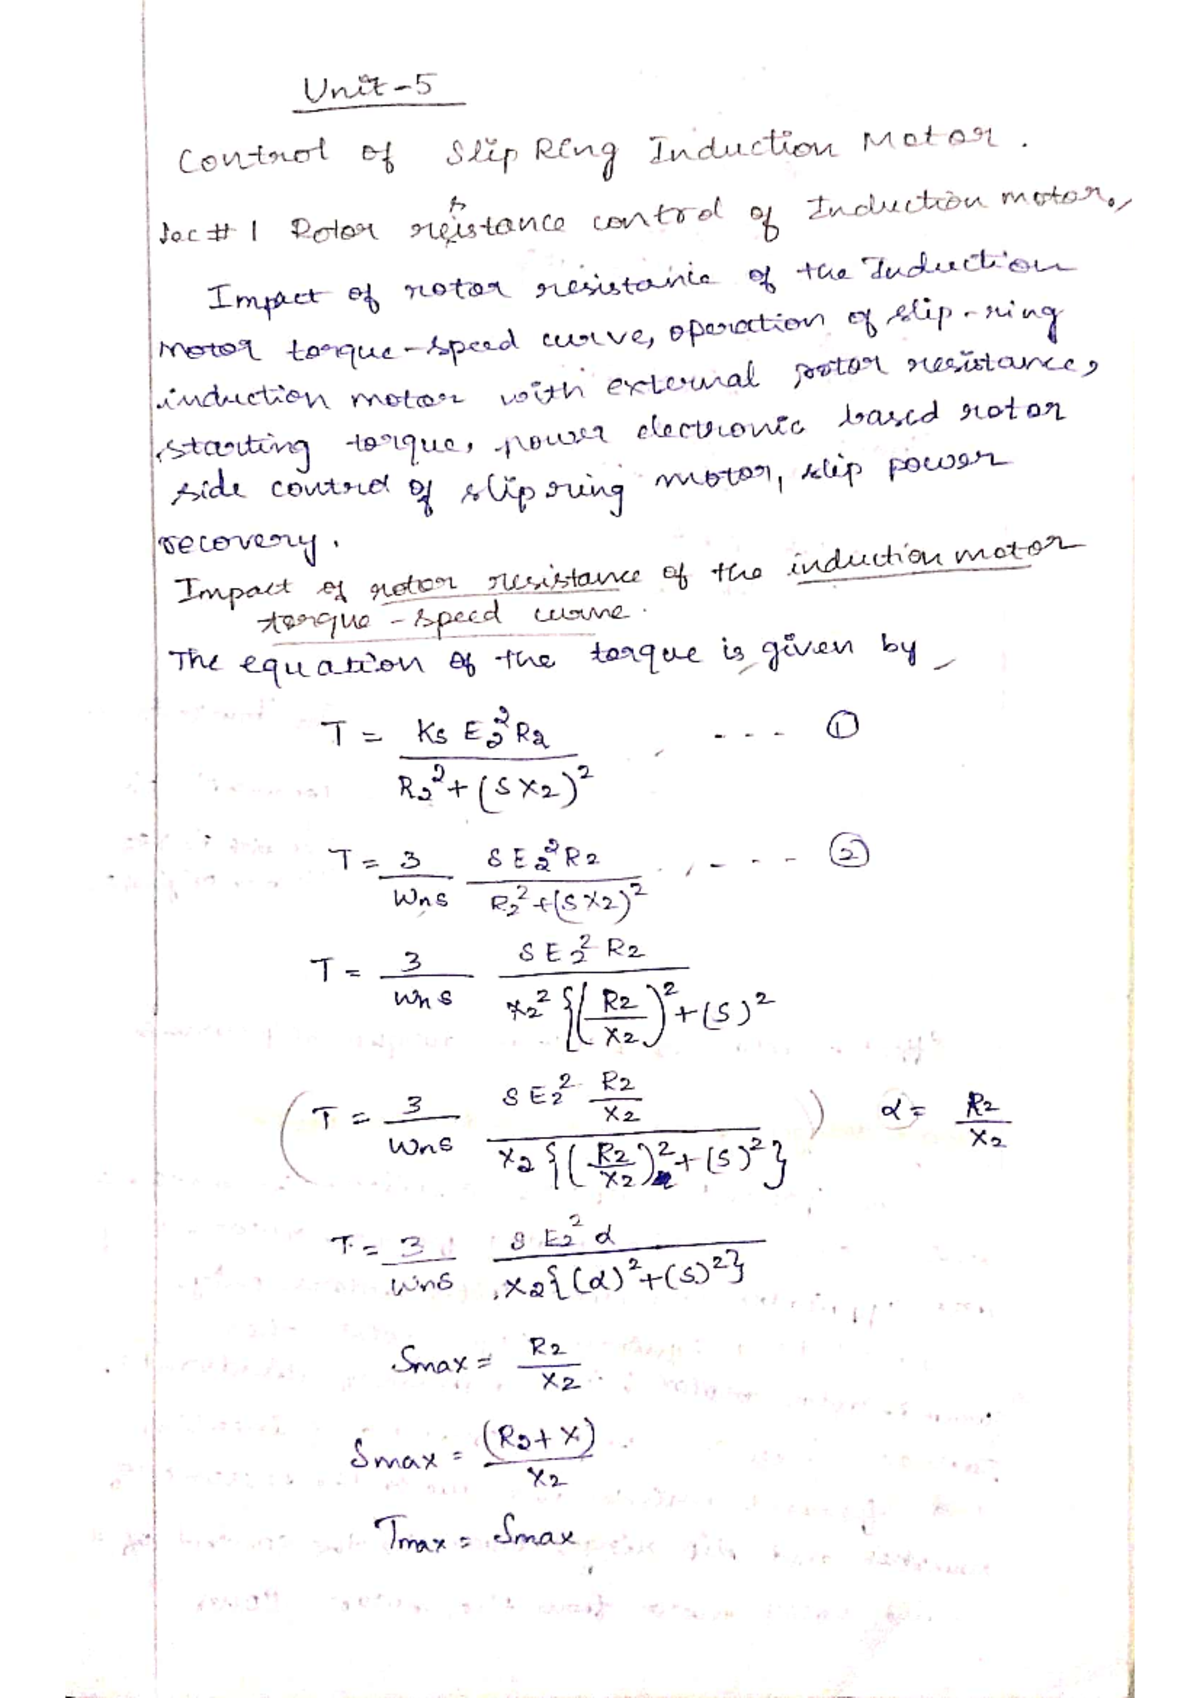 Unit-5
Control of Slip Ring Induction Motor.
Sec # 1 Rotor resistance control of Induction motor.,
Impact of rotor resistance of the Induction
Motor torque-speed curve, operation of slip-ring
induction motor with external rotor resistance,
starting torque, power electronic based rotor
side control of slip ring motor, slip power
recovery.
Impact of rotor resistance of the induction motor
torque - speed curve.
The equation of the torque is given by
T = Ks E₂² R₂ / R₂² + (S X₂)² - - - ①
T = 3 / Wns S E₂² R₂ / R₂² + (S X₂)² - - - ②
T = 3 / Wns S E₂² R₂ / X₂² {(R₂ / X₂)² + (S)²
( T = 3 / Wns S E₂² R₂ / X₂ / X₂ {(R₂ / X₂)² + (S)²} ) α = R₂ / X₂
T = 3 / Wns S E₂² α / X₂ {(α)² + (S)²}
Smax = R₂ / X₂
Smax = (R₂ + X) / X₂
Tmax = Smax